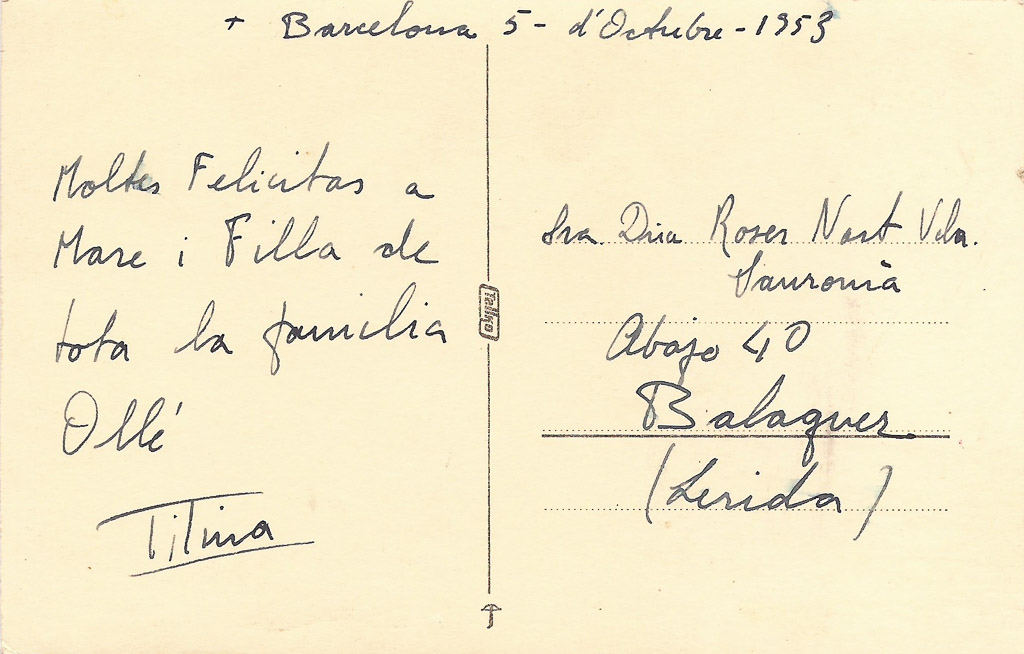 + Barcelona 5 - d'Octubre - 1953
Moltes Felicitas a
Mare i Filla de
tota la familia
Ollé
TiTina
Talleo
Sra Dña Roser Nart Vda.
Sauronià
Abajo 40
Balaguer
(Lerida)